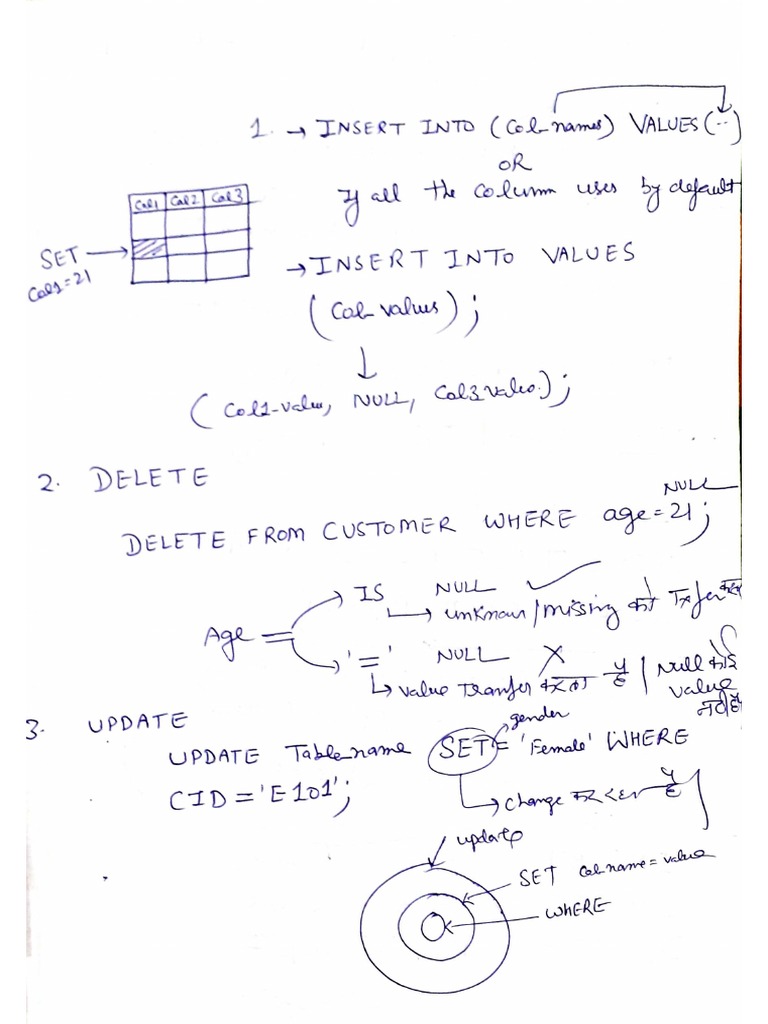 1. → INSERT INTO (Col_names) VALUES(..)
OR
If all the column uses by default
Col1 Col2 Col3
SET →
Col1=21
→ INSERT INTO VALUES
(Col_values);
(Col1-value, NULL, Col3value.);
2. DELETE
NULL
DELETE FROM CUSTOMER WHERE age=21;
IS NULL ✓
unknown/missing का
Age =
'=' NULL X
value Tranfer करता है | Null कोई
value
नहीं है
3. UPDATE
gender
UPDATE Table_name SET= 'Female' WHERE
CID='E101';
change कर
update
SET Col_name = value
WHERE